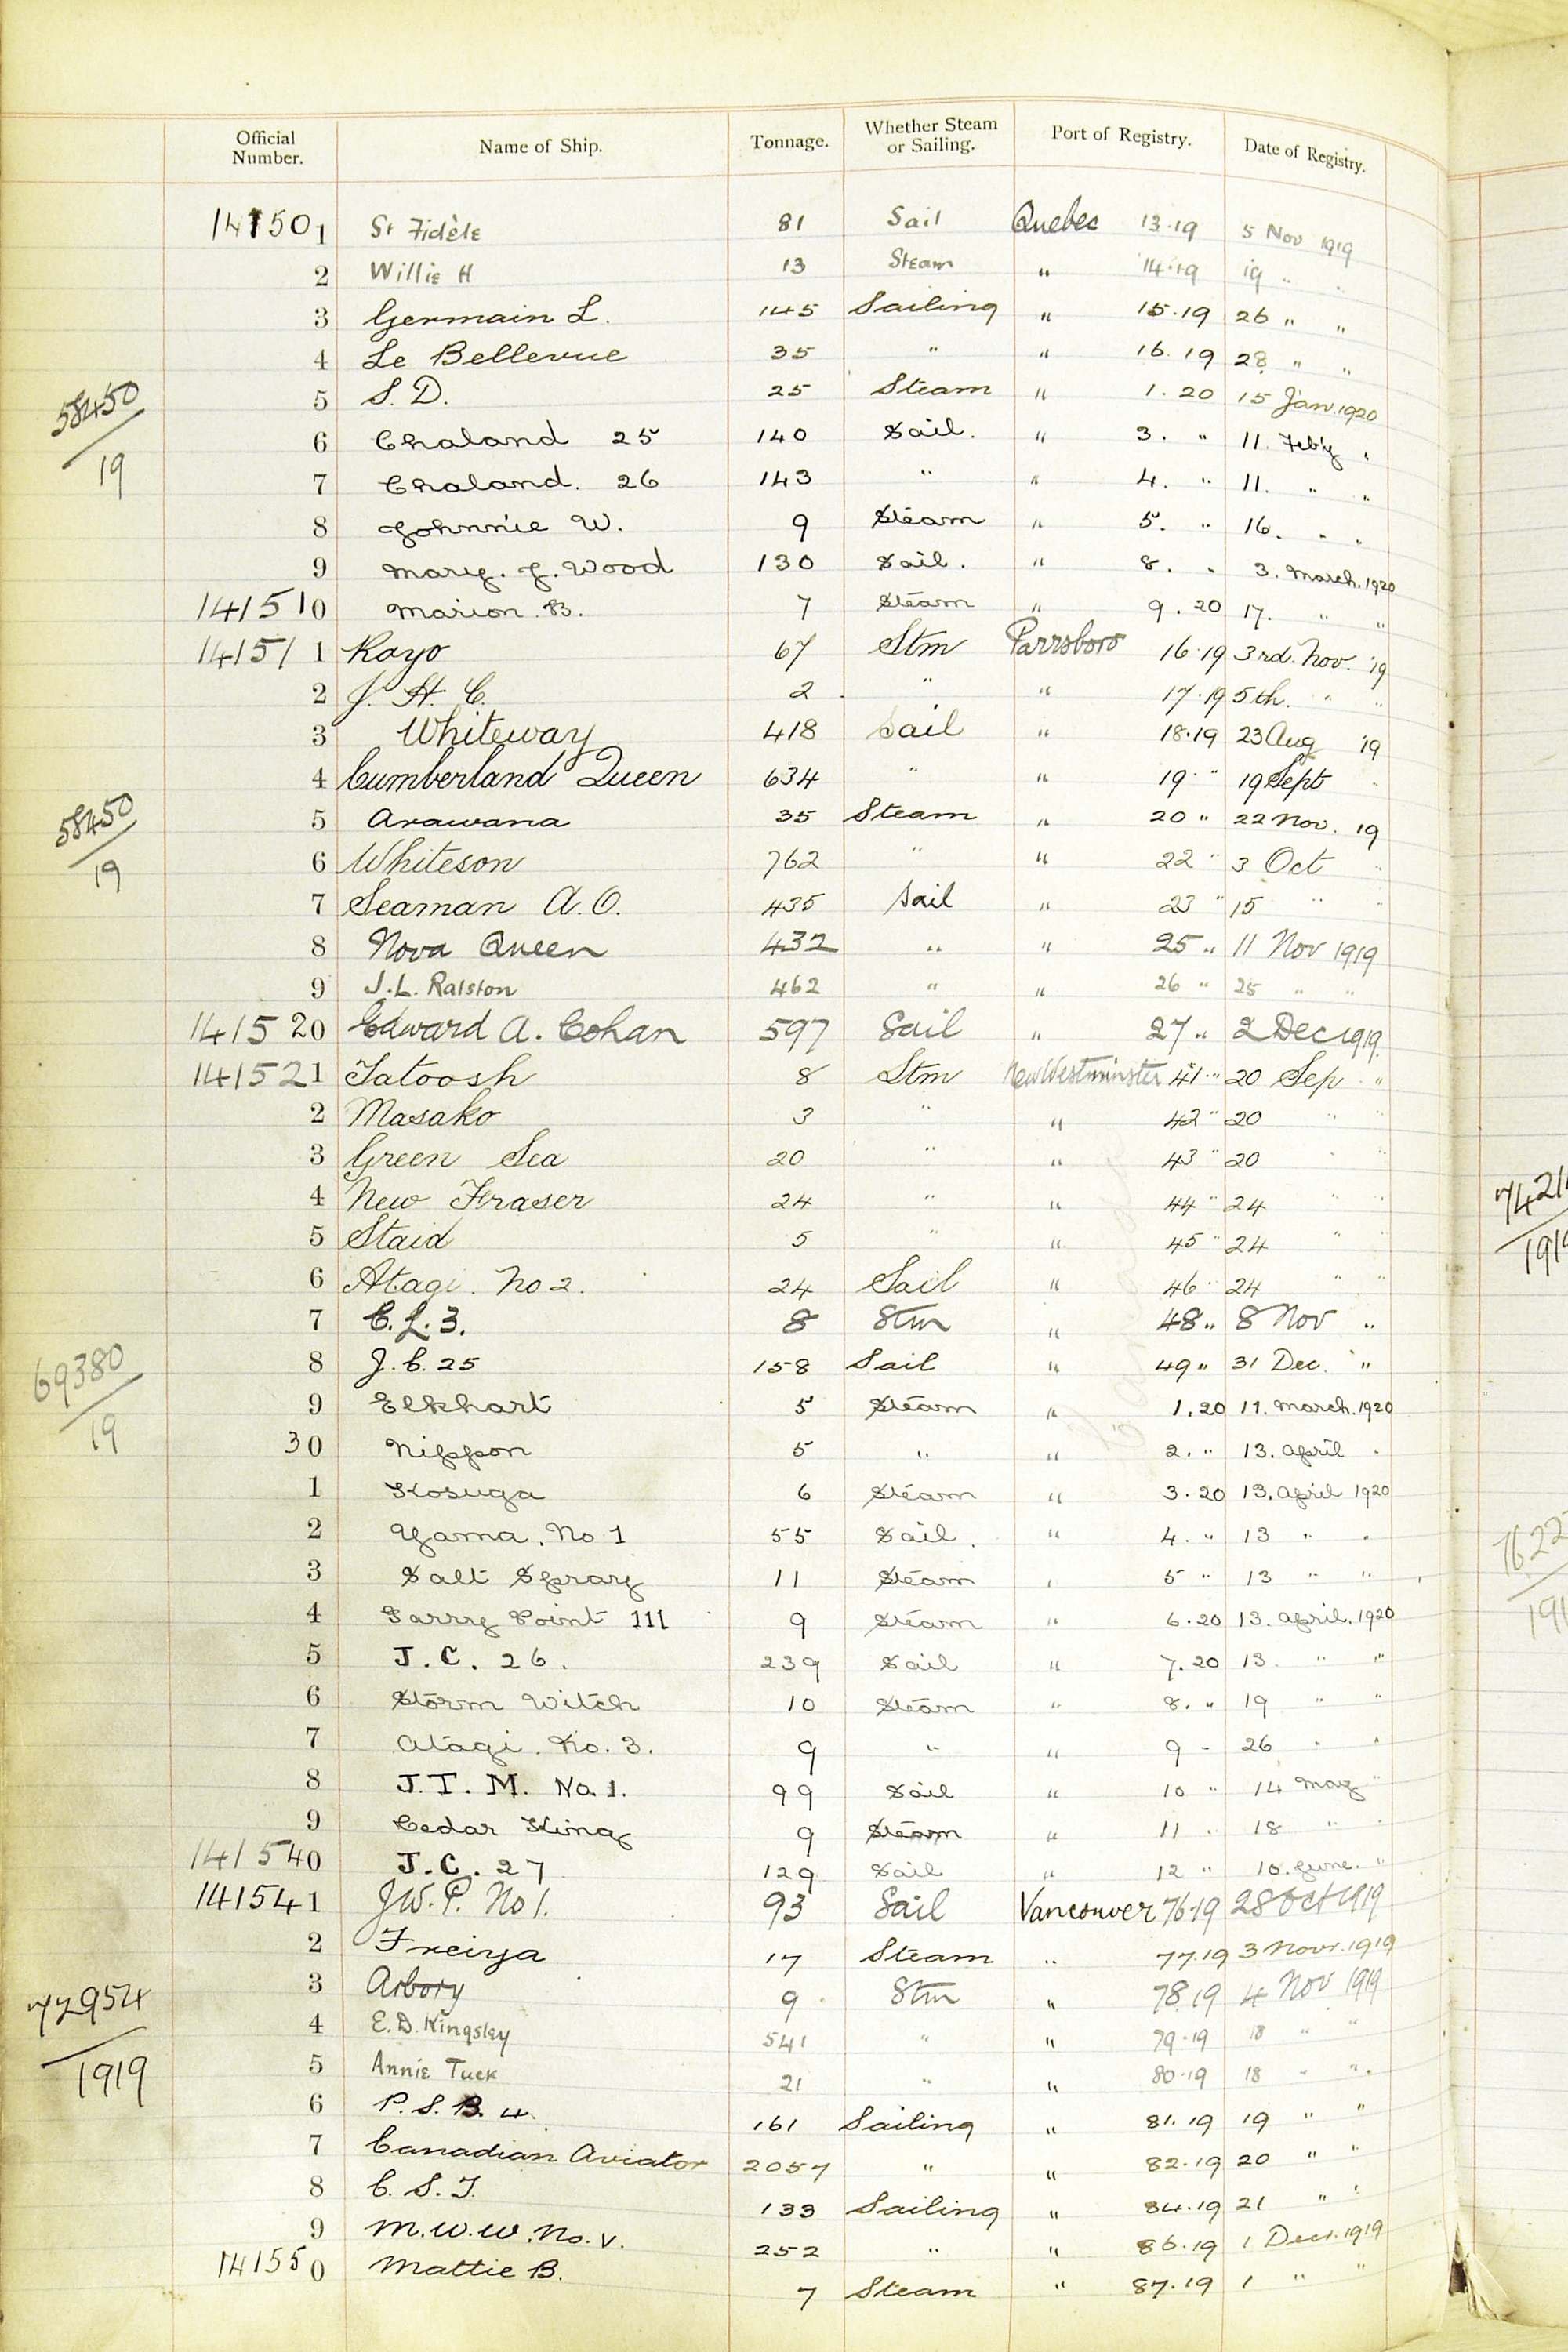 Official Number. Name of Ship. Tonnage. Whether Steam or Sailing. Port of Registry. Date of Registry.
141501 St Fidèle 81 Sail Quebec 13.19 5 Nov 1919
2 Willie H 13 Steam " 14.19 19 " "
3 Germain L. 145 Sailing " 15.19 26 " "
4 Le Bellevue 35 " " 16.19 28 " "
58450/19
5 S. D. 25 Steam " 1.20 15 Jan. 1920
6 Chaland 25 140 Sail. " 3. " 11. Feb'y "
7 Chaland. 26 143 " " 4. " 11. " "
8 Johnnie W. 9 Steam " 5. " 16. " "
9 Mary. J. Wood 130 Sail. " 8. " 3. March. 1920
141510 Marion. B. 7 Steam " 9.20 17. " "
141511 Kayo 67 Stm Parrsboro 16.19 3rd. Nov. '19
2 J. H. C. 2 " " 17.19 5th. " "
3 Whiteway 418 Sail " 18.19 23 Aug '19
4 Cumberland Queen 634 " " 19 " 19 Sept "
58450/19
5 Arawana 35 Steam " 20 " 22 Nov. 19
6 Whiteson 762 " " 22 " 3 Oct "
7 Seaman A. O. 435 Sail " 23 " 15 " "
8 Nova Queen 432 " " 25 " 11 Nov 1919
9 J. L. Ralston 462 " " 26 " 25 " "
141520 Edward A. Cohan 597 Sail " 27 " 2 Dec 1919.
141521 Tatoosh 8 Stm New Westminster 41 " 20 Sep "
2 Masako 3 " " 42 " 20 " "
3 Green Sea 20 " " 43 " 20 " "
4 New Fraser 24 " " 44 " 24 " "
5 Staid 5 " " 45 " 24 " "
6 Atagi. No 2. 24 Sail " 46 " 24 " "
7 C. L. 3. 8 Stm " 48 " 8 Nov "
69380/19
8 J. C. 25 158 Sail " 49 " 31 Dec. "
9 Elkhart 5 Steam " 1.20 11. March. 1920
30 Nippon 5 " " 2. " 13. April "
1 Kosuga 6 Steam " 3.20 13. April 1920
2 Yama. No 1 55 Sail. " 4. " 13 " "
3 Salt Spray 11 Steam " 5 " 13 " "
4 Garry Point 111 9 Steam " 6.20 13. April. 1920
5 J. C. 26. 239 Sail " 7.20 13. " "
6 Storm Witch 10 Steam " 8. " 19 " "
7 Atagi. No. 3. 9 " " 9 " 26 " "
8 J. T. M. No. 1. 99 Sail " 10 " 14 May "
9 Cedar King 9 Steam " 11 " 18 " "
141540 J. C. 27 129 Sail " 12 " 10. June. "
141541 J. W. P. No 1. 93 Sail Vancouver 76.19 28 Oct 1919
2 Freiya 17 Steam " 77.19 3 Novr. 1919
3 Arbory 9 Stm " 78.19 4 Nov 1919
72954/1919
4 E. D. Kingsley 541 " " 79.19 18 " "
5 Annie Tuck 21 " " 80.19 18 " "
6 P. S. B. 4. 161 Sailing " 81.19 19 " "
7 Canadian Aviator 2057 " " 82.19 20 " "
8 C. S. T. 133 Sailing " 84.19 21 " "
9 M. W. W. No. V. 252 " " 86.19 1 Decr. 1919
141550 Mattie B. 7 Steam " 87.19 1 " "